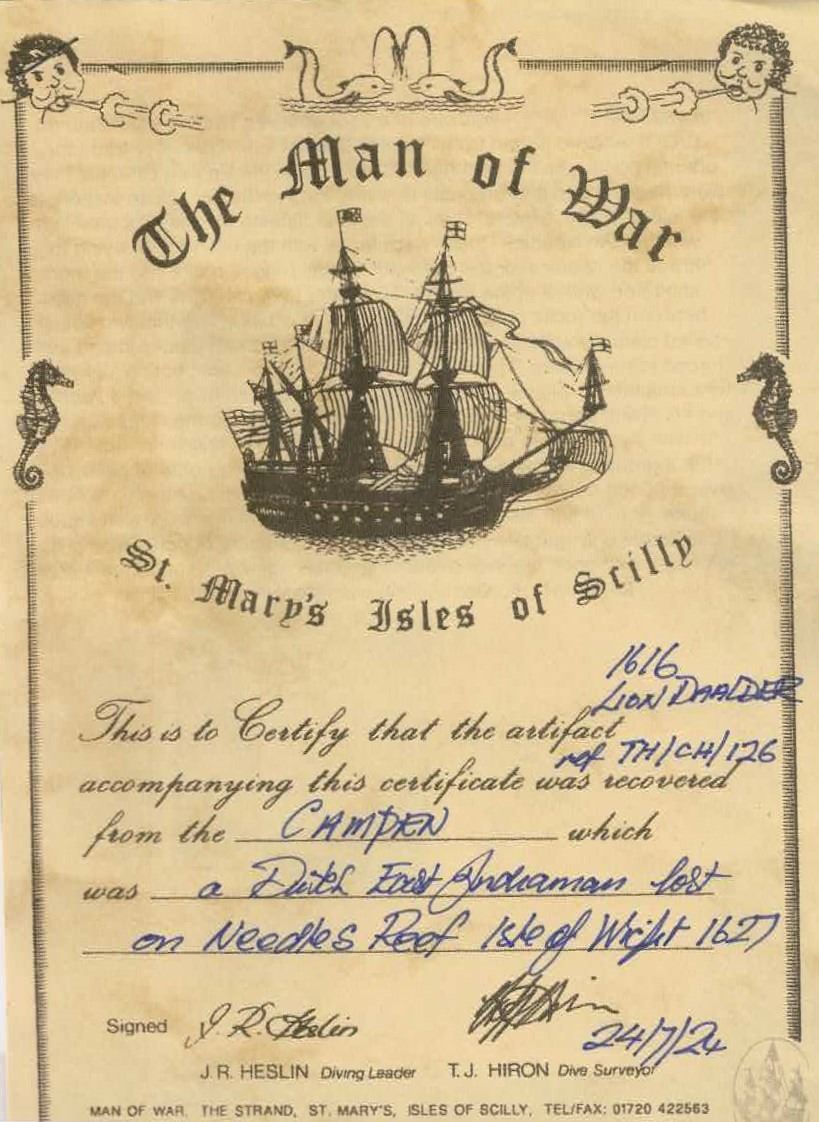 The Man of War
St. Mary's Isles of Scilly
1616
LION DAALDER
This is to Certify that the artifact
ref TH/CH/126
accompanying this certificate was recovered
from the CAMPEN which
was a Dutch East Indiaman lost
on Needles Reef Isle of Wight 1627
Signed J.R. Heslin
24/7/24
J.R. HESLIN Diving Leader T.J. HIRON Dive Surveyor
MAN OF WAR, THE STRAND, ST. MARY'S, ISLES OF SCILLY, TEL/FAX: 01720 422563